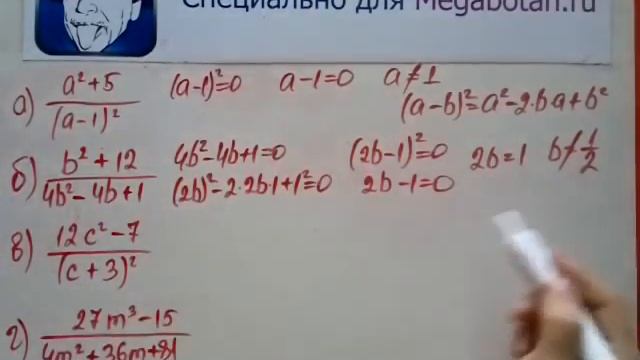 Специально для Megabotan.ru
а) (a²+5)/(a-1)² (a-1)²=0 a-1=0 a≠1
(a-b)²=a²-2·b·a+b²
б) (b²+12)/(4b²-4b+1) 4b²-4b+1=0 (2b-1)²=0 2b=1 b≠1/2
(2b)²-2·2b·1+1²=0 2b-1=0
в) (12c²-7)/(c+3)²
г) (27m³-15)/(4m²+36m+81)